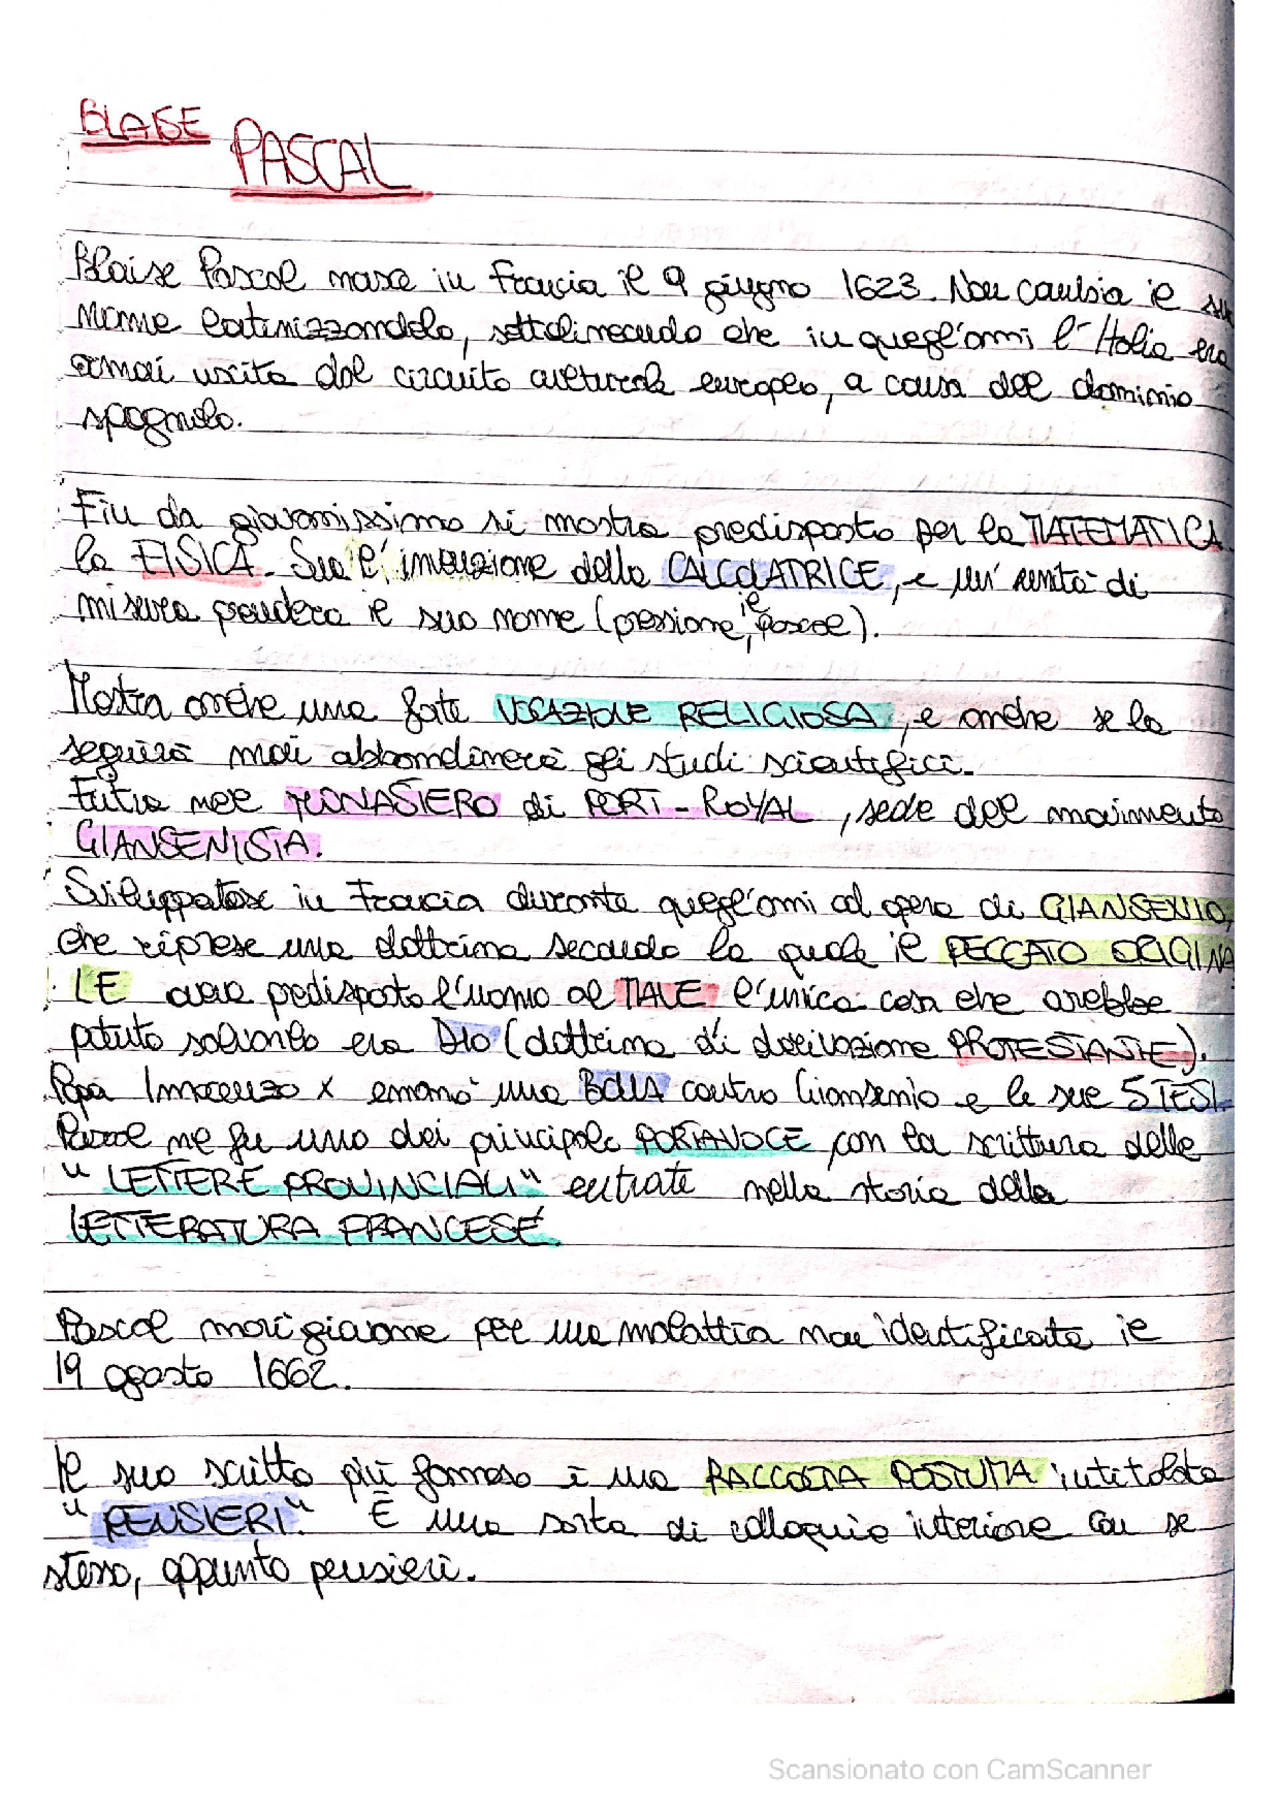 BLAISE
PASCAL
Blaise Pascal nasce in Francia il 9 giugno 1623. Non cambia il su
nome latinizzandolo, sottolineando che in quegl'anni l'Italia era
ormai uscita dal circuito culturale europeo, a causa del dominio
spagnolo.
Fin da giovanissimo si mostra predisposto per la MATEMATICA
la FISICA. Sua è l'invenzione della CALCOLATRICE, e un' unità di
misura prenderà il suo nome (pressione, il pascal).
Mostra anche una forte VOCAZIONE RELIGIOSA, e anche se la
seguirà mai abbandonerà gli studi scientifici.
Entra nel MONASTERO di PORT-ROYAL, sede del movimento
GIANSENISTA.
Sviluppatosi in Francia durante quegl'anni ad opera di GIANSENIO,
che riprese una dottrina secondo la quale il PECCATO ORIGINA
LE aveva predisposto l'uomo al MALE e l'unica cosa che avrebbe
potuto salvarlo era DIO (dottrina di derivazione PROTESTANTE).
Papa Innocenzo X emanò una BOLLA contro Giansenio e le sue 5 TESI.
Pascal ne fu uno dei principale PORTAVOCE con la scrittura delle
"LETTERE PROVINCIALI" entrate nella storia della
LETTERATURA FRANCESE.
Pascal morì giovane per una malattia non identificata il
19 agosto 1662.
Il suo scritto più famoso è una RACCOLTA POSTUMA intitolata
"PENSIERI". È una sorta di colloquio interiore con se
stesso, appunto pensieri.
Scansionato con CamScanner